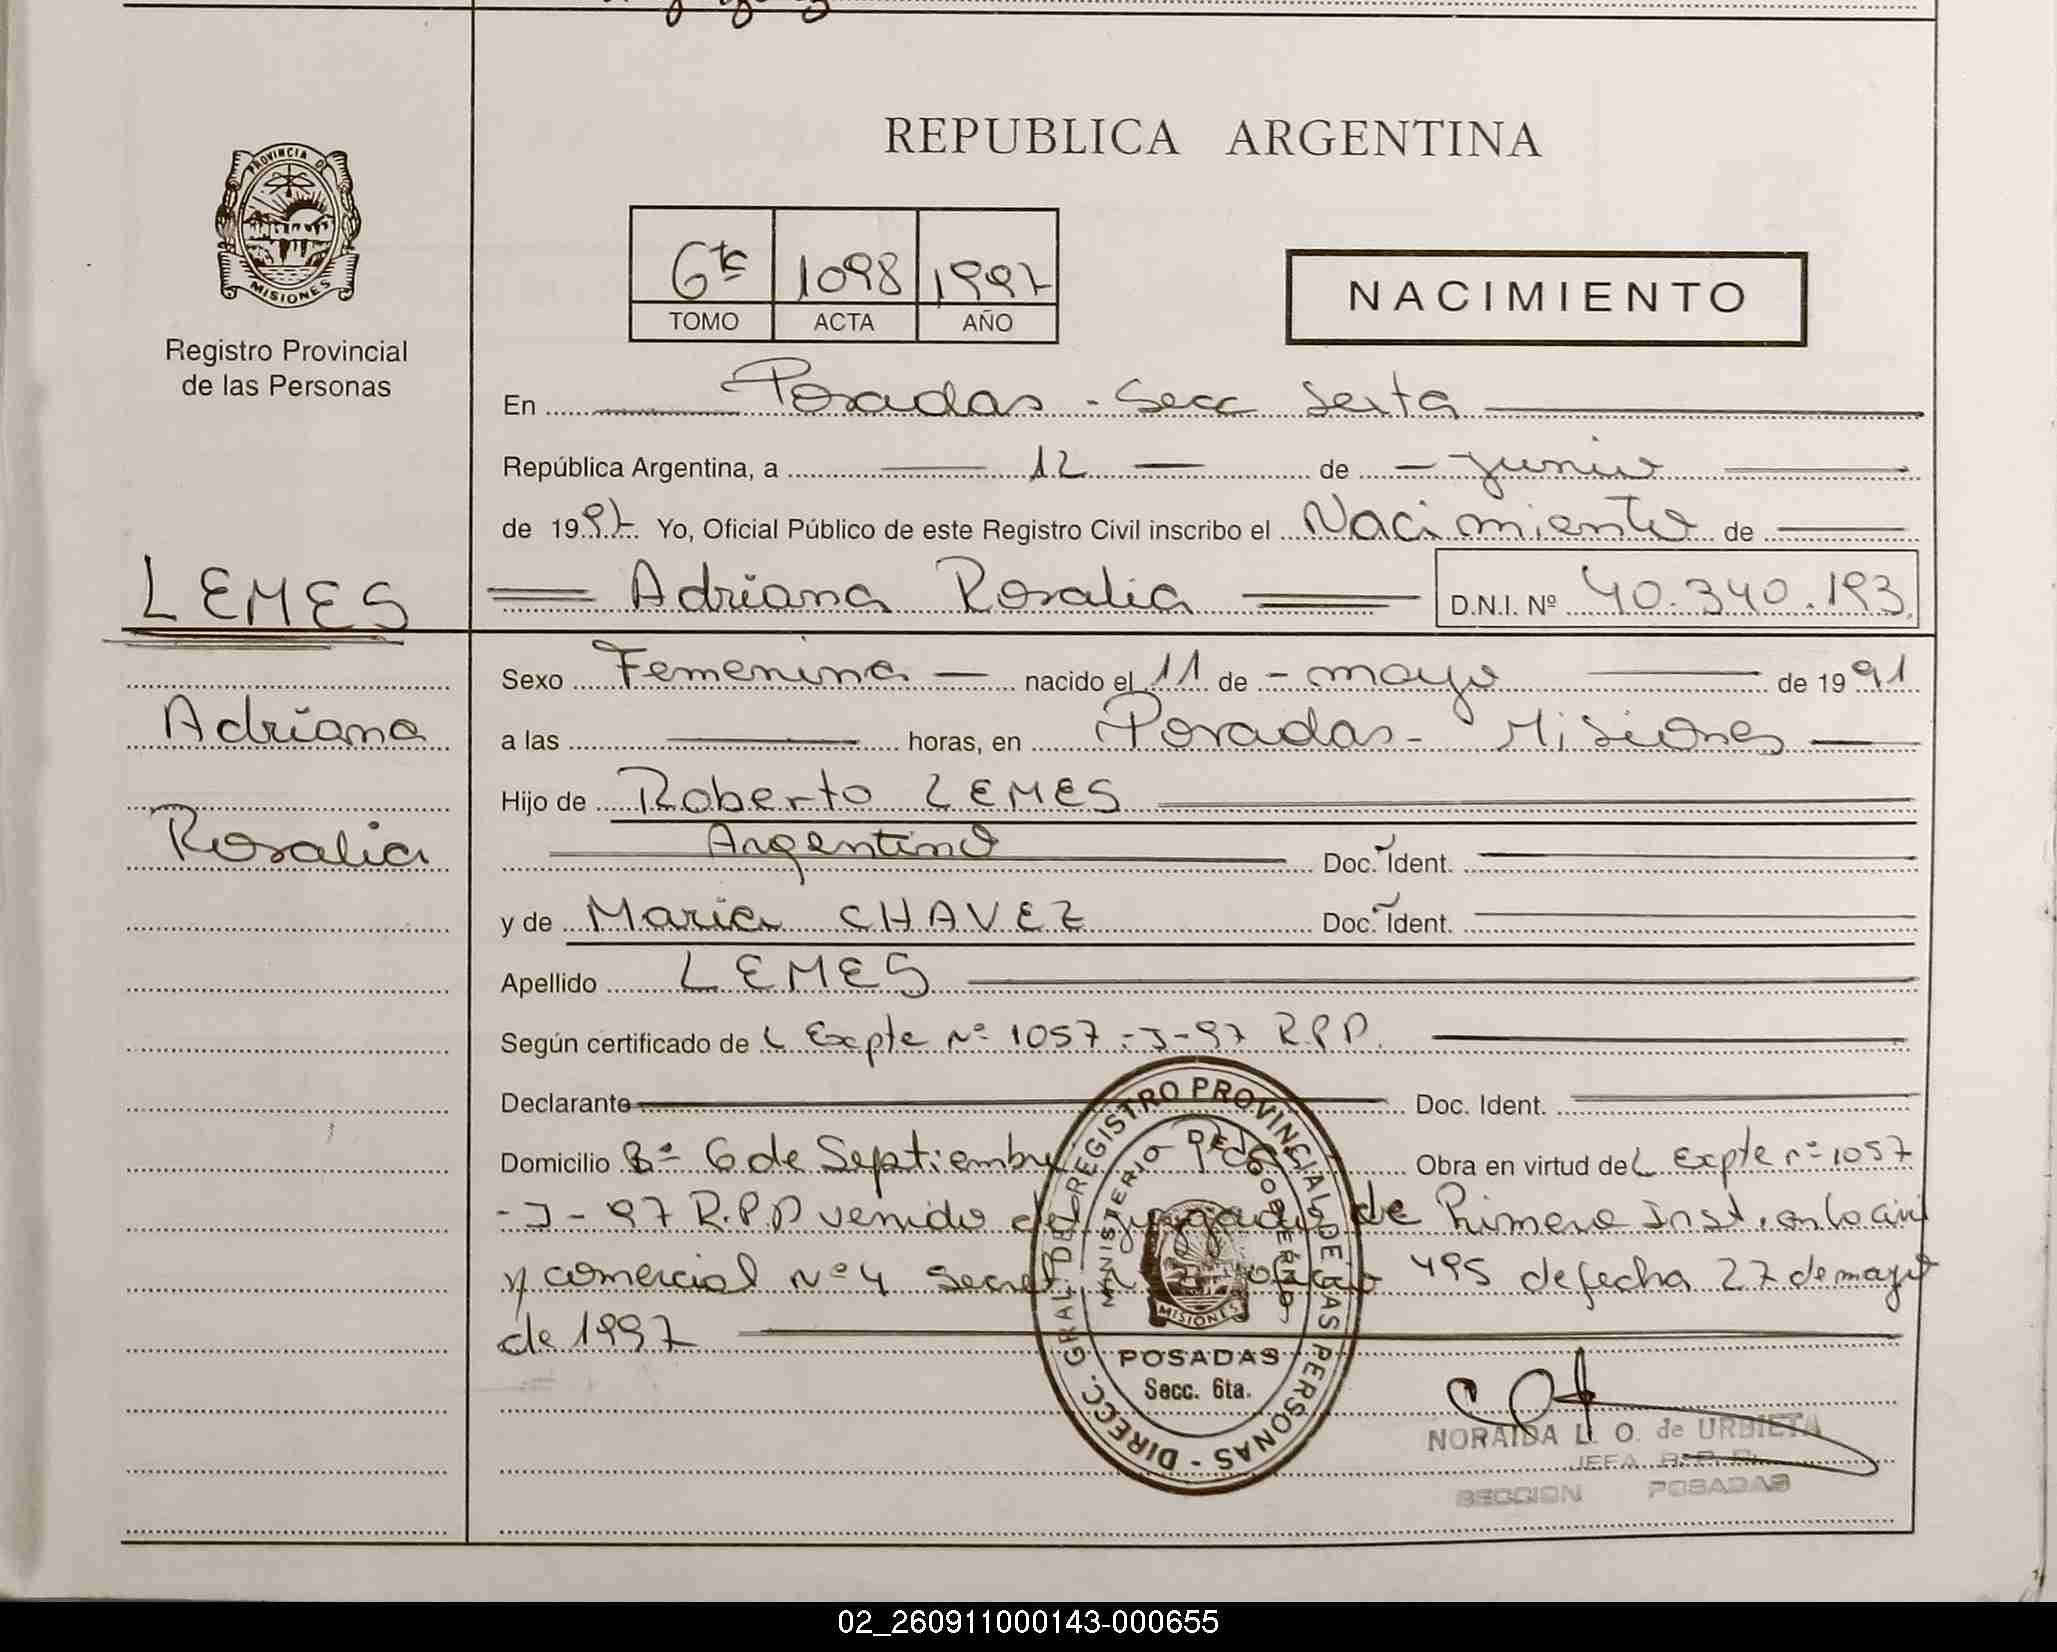 REPUBLICA ARGENTINA
PROVINCIA DE
MISIONES
Registro Provincial
de las Personas
6ta 1098 1997
TOMO ACTA AÑO
NACIMIENTO
En Posadas - Secc Sexta
República Argentina, a 12 de junio
de 1997 Yo, Oficial Público de este Registro Civil inscribo el Nacimiento de
LEMES
Adriana Rosalia D.N.I. Nº 40.340.193
Adriana
Rosalia
Sexo Femenina nacido el 11 de mayo de 1991
a las horas, en Posadas - Misiones
Hijo de Roberto LEMES
Argentino Doc. Ident.
y de Maria CHAVEZ Doc. Ident.
Apellido LEMES
Según certificado de L Expte Nº 1057 - J - 97 R.P.P.
Declarante Doc. Ident.
Domicilio Bº 6 de Septiembre Pdas Obra en virtud del Expte nº 1057
- J - 97 R.P.P venido del juzgado de Primera Inst. en lo civil
y comercial Nº 4 Secret oficio 495 de fecha 27 de mayo
de 1997
DIRECC. GRAL. DEL REGISTRO PROVINCIAL DE LAS PERSONAS -
MINISTERIO DE GOBIERNO
MISIONES
POSADAS
Secc. 6ta.
NORAIDA L. O. de URBIETA
JEFA R. P. P.
SECCION POSADAS
02_260911000143-000655